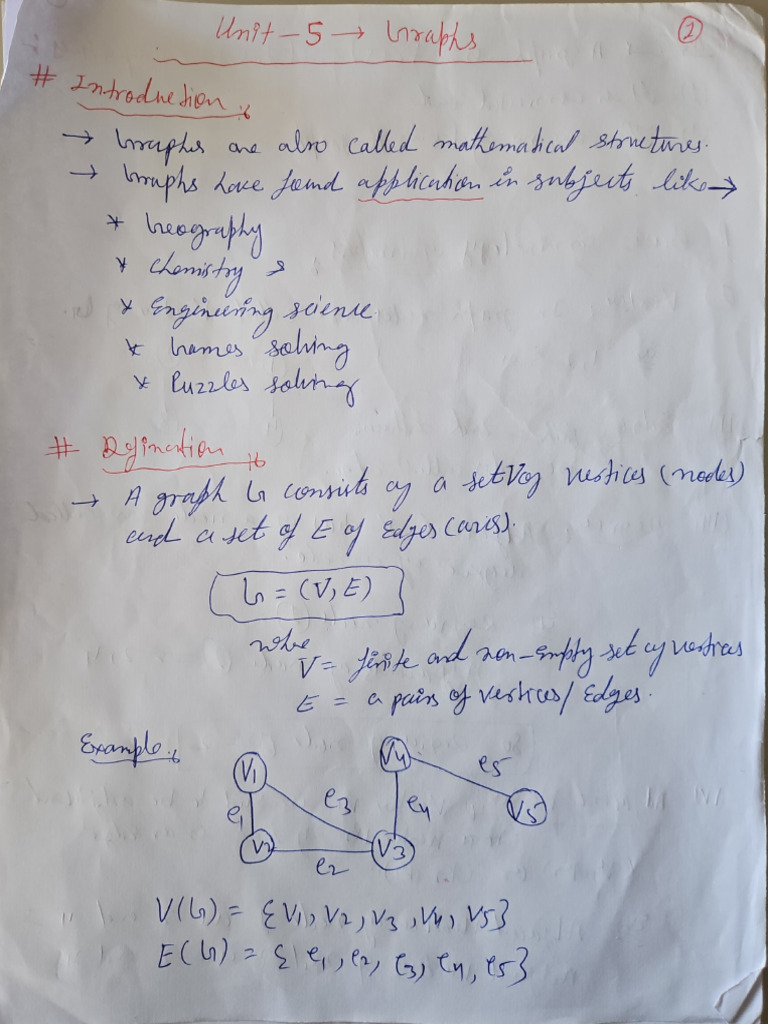 Unit - 5 → Graphs
②
# Introduction :
→ Graphs are also called mathematical structures.
→ Graphs have found application in subjects like →
* Geography
* Chemistry
* Engineering science
* Games solving
* Puzzles solving
# Defination :
→ A graph G consists of a set V of vertices (nodes)
and a set of E of Edges (arcs).
G = (V, E)
where
V = finite and non-empty set of vertices
E = a pairs of vertices / Edges.
Example :
V1 V4 e5
e1 e3 e4 V5
V2 e2 V3
V(G) = {V1, V2, V3, V4, V5}
E(G) = {e1, e2, e3, e4, e5}